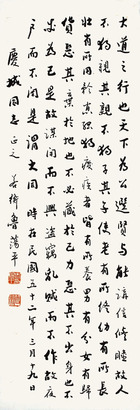 大道之行也天下為公選賢與能講信修睦故人
不獨親其親不獨子其子使老有所終幼有所長
壯有所用矜寡孤獨廢疾者皆有所養男有分女有歸
貨惡其棄於地也不必藏於己力惡其不出於身也不
必為己是故謀閉而不興盜竊亂賊而不作故外
戶而不閉是謂大同 時在民國五十二年三月十九日
慶城同志正之 若衡魯蕩平